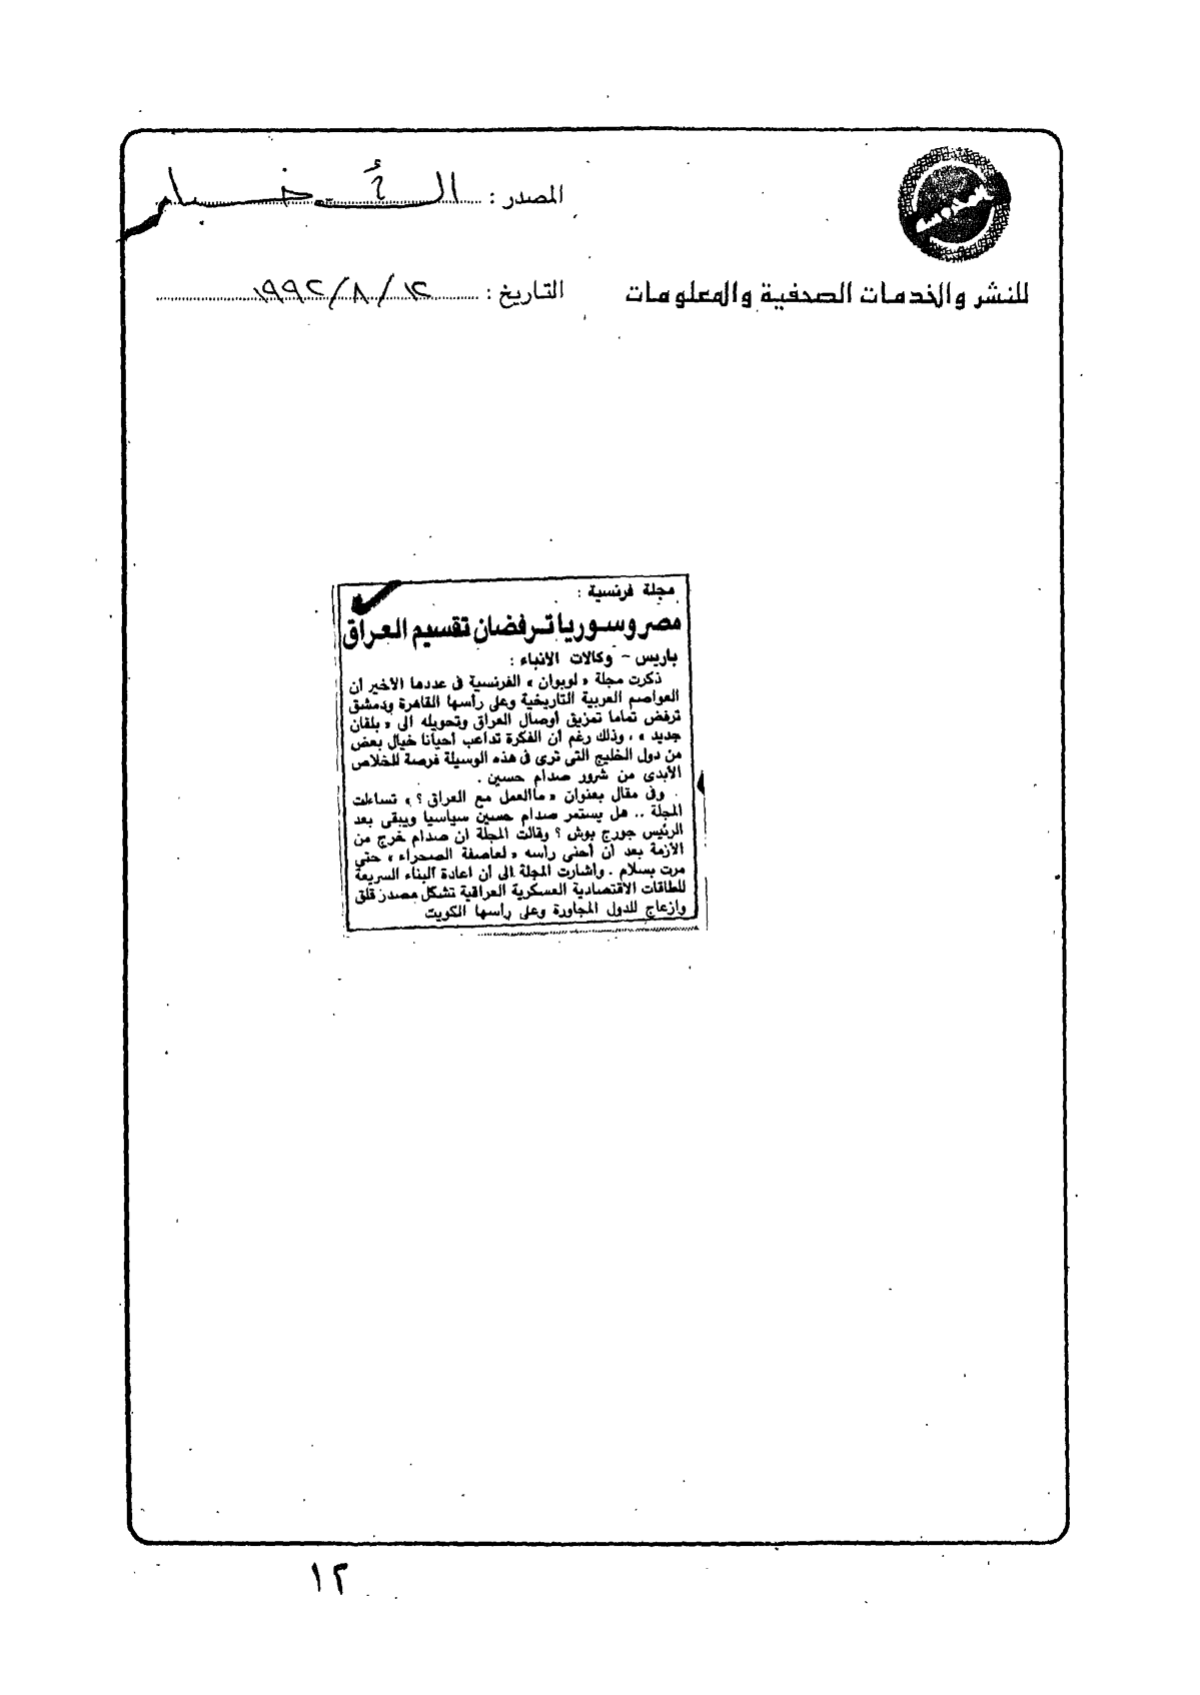 المصدر : الأخبار
للنشر والخدمات الصحفية والمعلومات
التاريخ : ١٢/٨/١٩٩٢
مجلة فرنسية :
مصر وسوريا ترفضان تقسيم العراق
باريس - وكالات الأنباء :
ذكرت مجلة « لوبوان » الفرنسية فى عددها الأخير أن
العواصم العربية التاريخية وعلى رأسها القاهرة ودمشق
ترفض تماما تمزيق أوصال العراق وتحويله الى « بلقان
جديد » ، وذلك رغم أن الفكرة تداعب أحيانا خيال بعض
من دول الخليج التى ترى فى هذه الوسيلة فرصة للخلاص
الأبدى من شرور صدام حسين .
وفى مقال بعنوان « ماالعمل مع العراق ؟ » تساءلت
المجلة .. هل يستمر صدام حسين سياسيا ويبقى بعد
الرئيس جورج بوش ؟ وقالت المجلة ان صدام خرج من
الأزمة بعد أن أحنى رأسه « لعاصفة الصحراء » حتى
مرت بسلام . واشارت المجلة الى أن اعادة البناء السريعة
للطاقات الاقتصادية العسكرية العراقية تشكل مصدر قلق
وازعاج للدول المجاورة وعلى رأسها الكويت
١٢